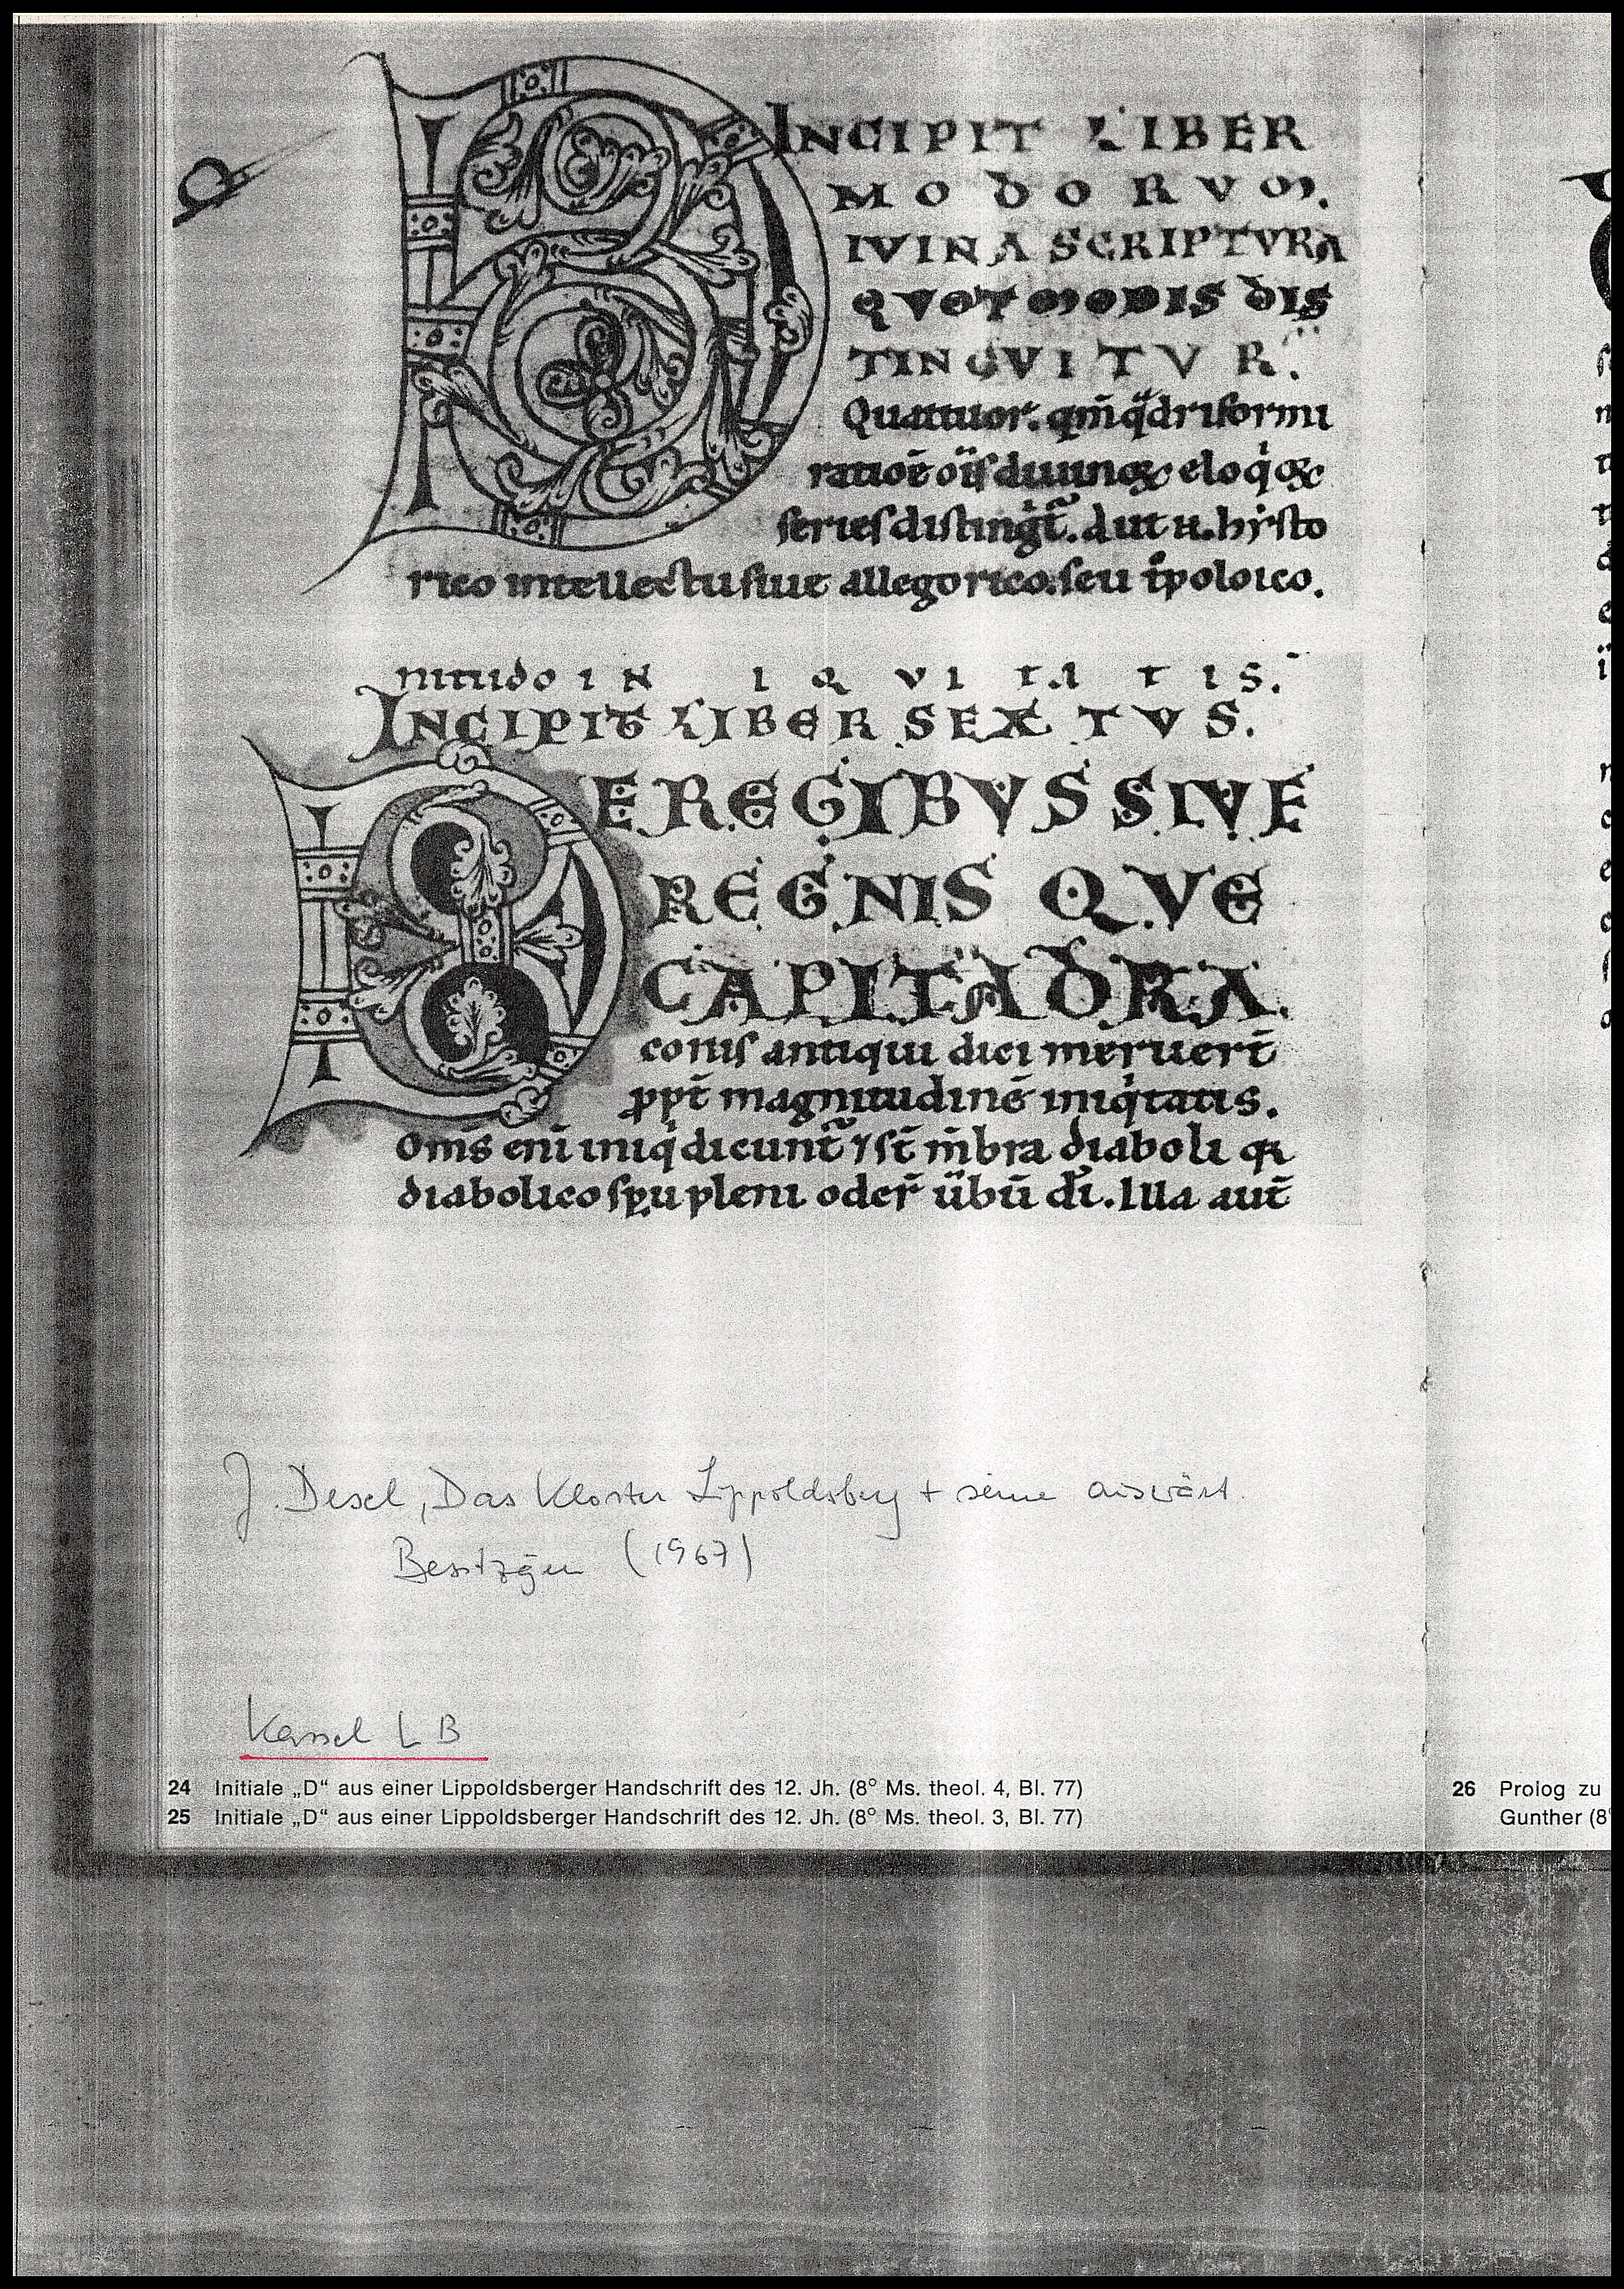 INCIPIT LIBER
MODORVM.
IVINA SCRIPTVRA
QVOT MODIS DIS
TINGVITVR.
Quattuor. qm̄ q̈driformi
seriesdistingit̃. aut .n. hẏsto
rico intellectu siue allegorico. seu
nitudo IN IQVITATIS.
INCIPIT LIBER SEXTVS.
DE REGIBVS SIVE
REGNIS QVE
CAPITA DRA
conis antiqui dici meruert̄
ppt̄ magnitudinē iniq̇tatis.
Om̄s eni iniq̇ dicunt̃ ⁊ st̄ m̄bra diaboli
diabolico spu pleni . Illa aut̄
J. Desel, Das Kloster Lippoldsberg + seine auswärt.
Besitzgen (1967)
Kassel LB
24 Initiale „D“ aus einer Lippoldsberger Handschrift des 12. Jh. (8° Ms. theol. 4, Bl. 77)
25 Initiale „D“ aus einer Lippoldsberger Handschrift des 12. Jh. (8° Ms. theol. 3, Bl. 77)
26 Prolog zu
Gunther (8°